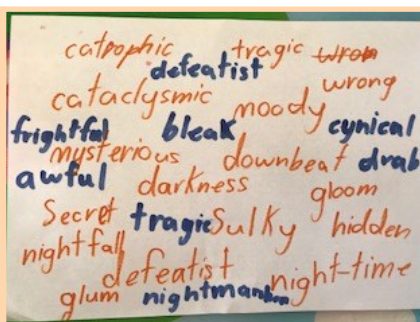 catrophic tragic wron
defeatist
wrong
cataclysmic moody
frightful bleak cynical
mysterious downbeat drab
awful darkness gloom
Secret tragic Sulky hidden
nightfall
defeatist night-time
glum